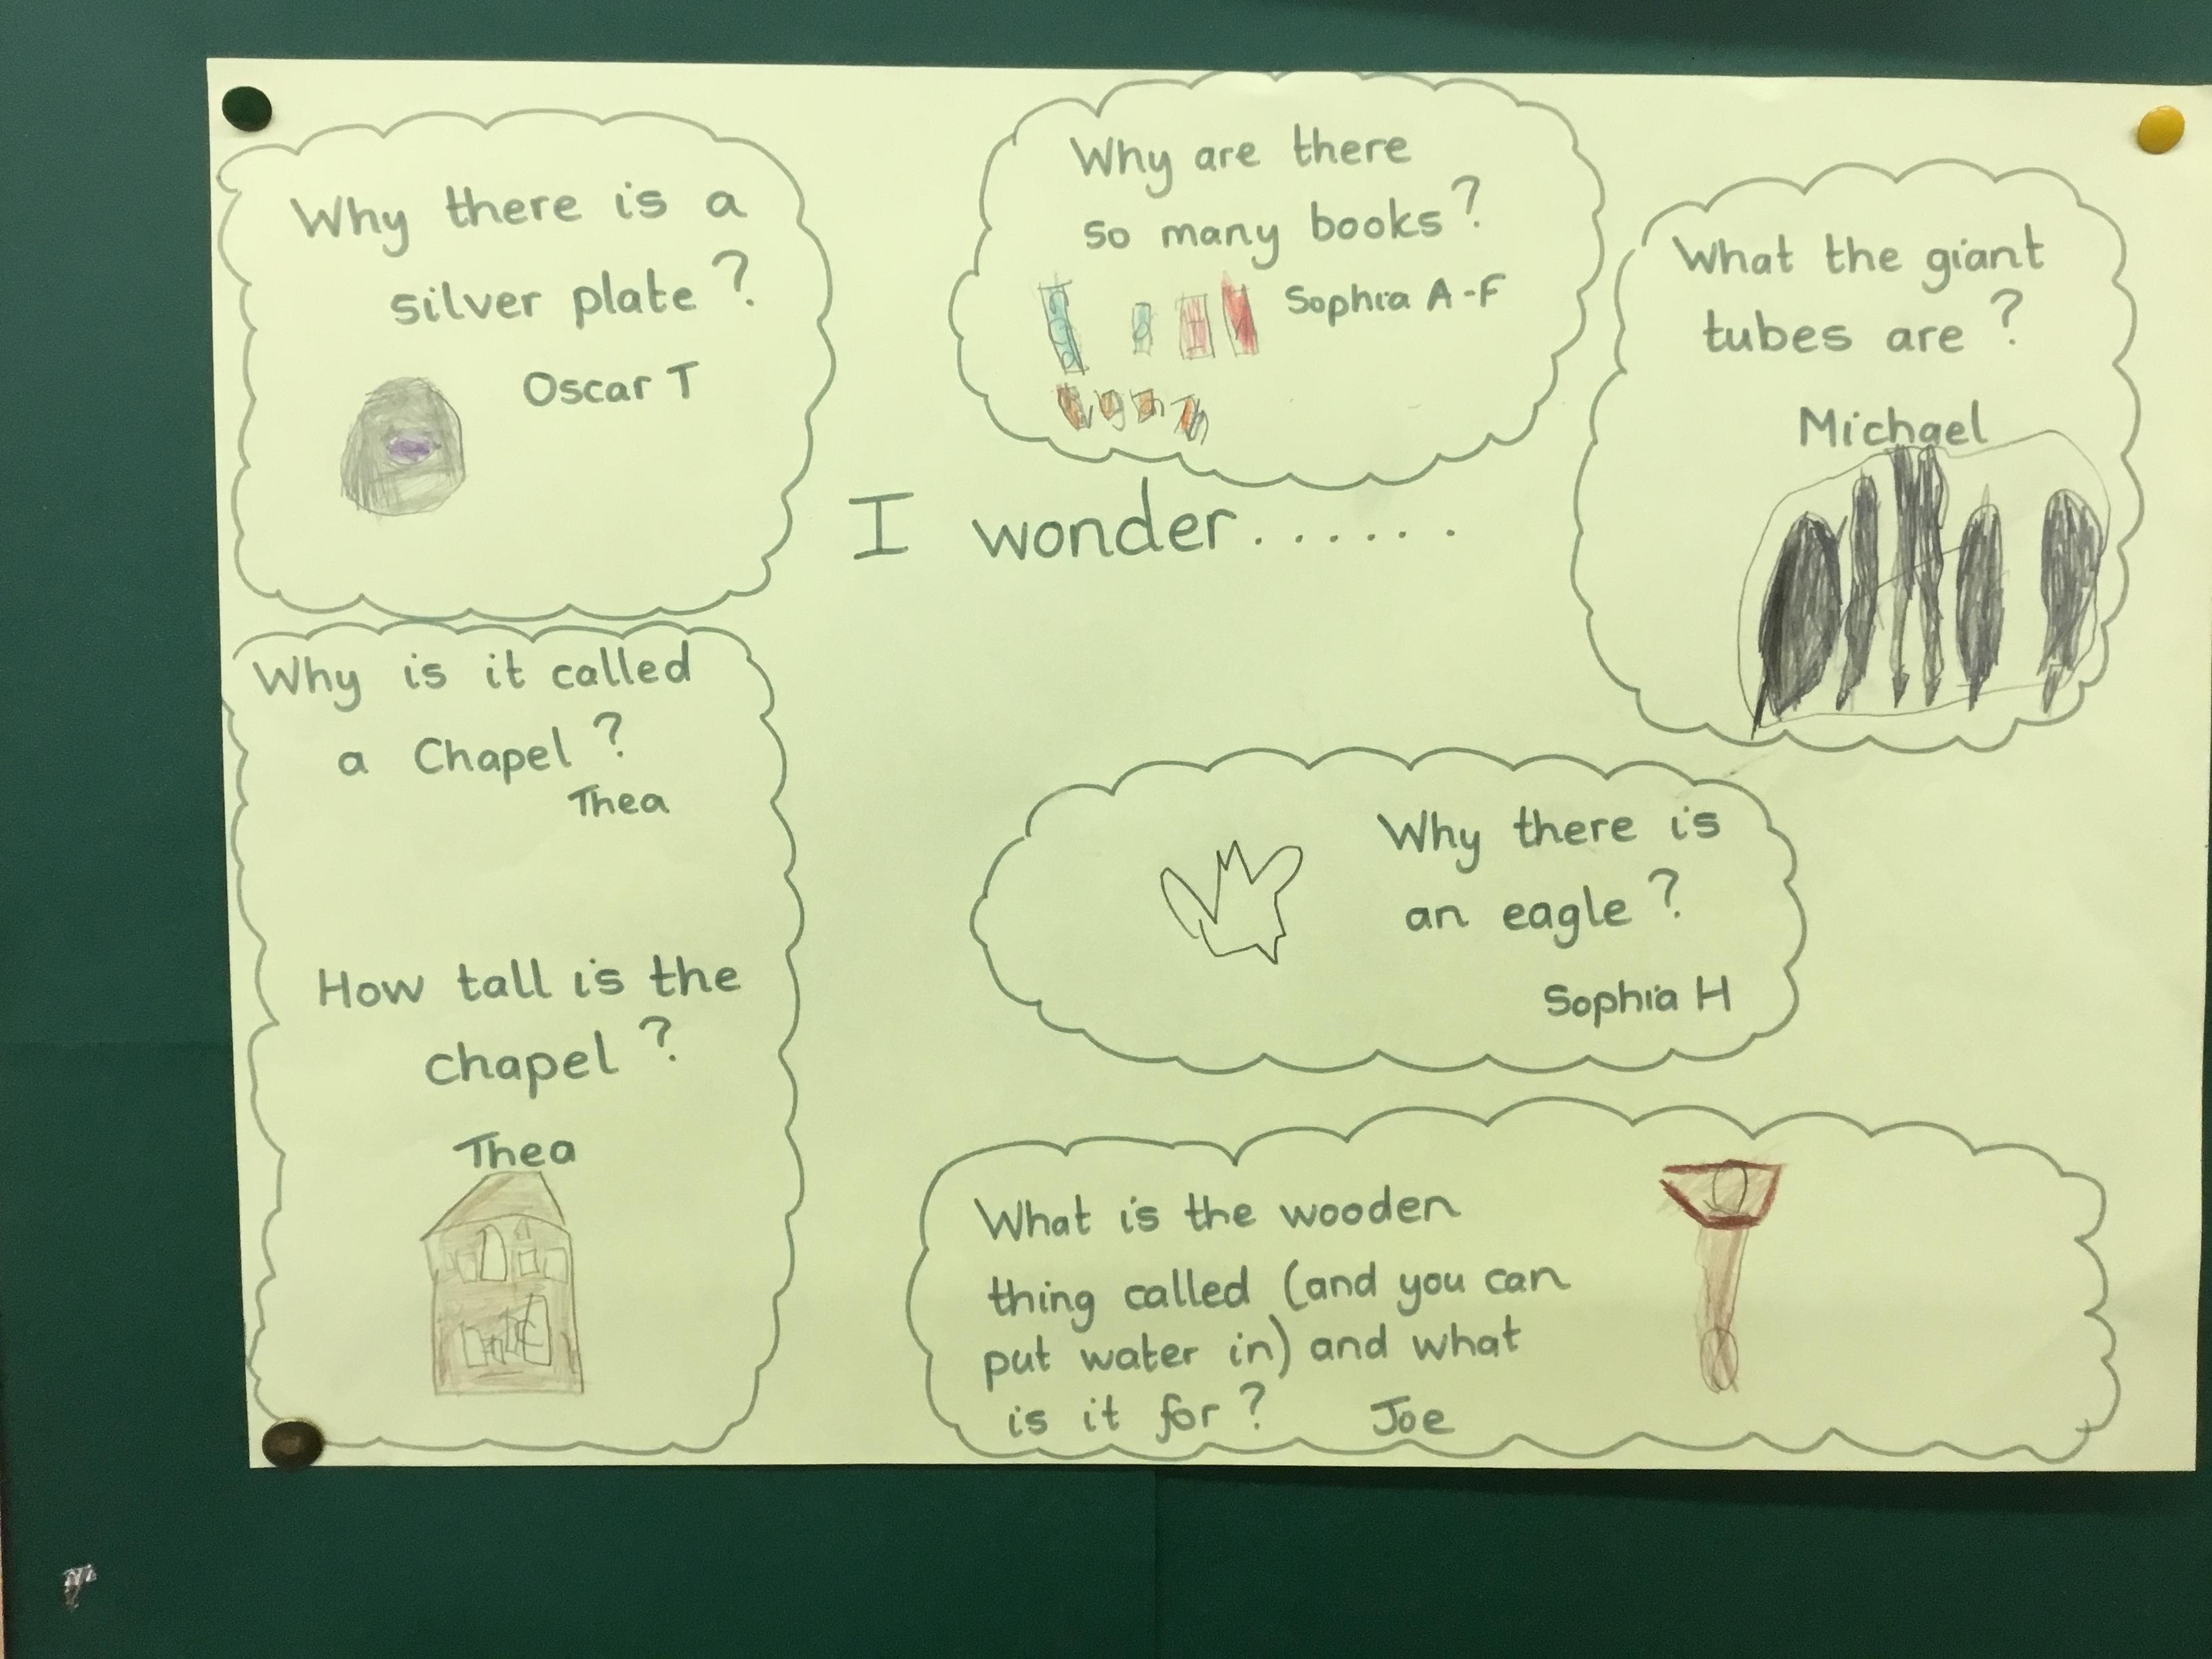 Why there is a
silver plate ?
Oscar T
Why are there
so many books ?
Sophia A-F
What the giant
tubes are ?
Michael
I wonder......
Why is it called
a Chapel ?
Thea
How tall is the
chapel ?
Thea
Why there is
an eagle ?
Sophia H
What is the wooden
thing called (and you can
put water in) and what
is it for ? Joe